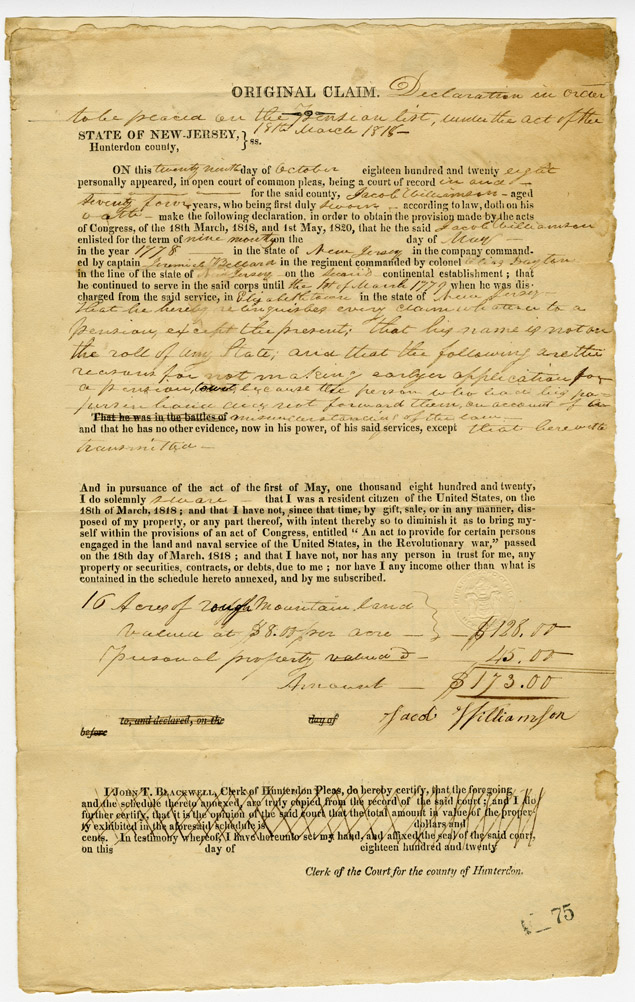 ORIGINAL CLAIM. Declaration in order
to be placed on the Pension list, under the act of the
18th March 1818
STATE OF NEW-JERSEY, } ss.
Hunterdon county,
ON this twenty ninth day of October eighteen hundred and twenty eight
personally appeared, in open court of common pleas, being a court of record in and
for the said county, Jacob Williamson - aged
seventy four years, who being first duly sworn - according to law, doth on his
oath - make the following declaration, in order to obtain the provision made by the acts
of Congress, of the 18th March, 1818, and 1st May, 1820, that he the said Jacob Williamson
enlisted for the term of nine months on the day of May -
in the year 1778 in the state of New Jersey in the company command-
ed by captain Ballard in the regiment commanded by colonel Dayton
in the line of the state of N Jersey - on the continental establishment; that
he continued to serve in the said corps until the 1st of March 1779 when he was dis-
charged from the said service, in Elizabethtown in the state of New Jersey -
that he hereby relinquishes every claim whatever to a
Pension, except the present; that his name is not on
the roll of any State; and that the following are the
reasons for not making earlier application for
a pension, because the person who had his pa-
pers in hand did not forward them, on account of a
That he was in the battles of misunderstanding of the law -
and that he has no other evidence, now in his power, of his said services, except that herewith
transmitted -
And in pursuance of the act of the first of May, one thousand eight hundred and twenty,
I do solemnly sware - that I was a resident citizen of the United States, on the
18th of March, 1818; and that I have not, since that time, by gift, sale, or in any manner, dis-
posed of my property, or any part thereof, with intent thereby so to diminish it as to bring my-
self within the provisions of an act of Congress, entitled "An act to provide for certain persons
engaged in the land and naval service of the United States, in the Revolutionary war," passed
on the 18th day of March, 1818; and that I have not, nor has any person in trust for me, any
property or securities, contracts, or debts, due to me; nor have I any income other than what is
contained in the schedule hereto annexed, and by me subscribed.
16 Acres of rough Mountain land
Valued at $8.00 per acre - $128.00
personal property valued - 45.00
Amount - $173.00
to, and declared, on the day of
before
Jacob Williamson
I JOHN T. BLACKWELL, Clerk of Hunterdon Pleas, do hereby certify, that the foregoing
and the schedule thereto annexed, are truly copied from the record of the said court; and I do
further certify, that it is the opinion of the said court that the total amount in value of the proper-
ty exhibited in the aforesaid schedule is dollars and
cents. In testimony whereof, I have hereunto set my hand, and affixed the seal of the said court,
on this day of eighteen hundred and twenty
Clerk of the Court for the county of Hunterdon.
75